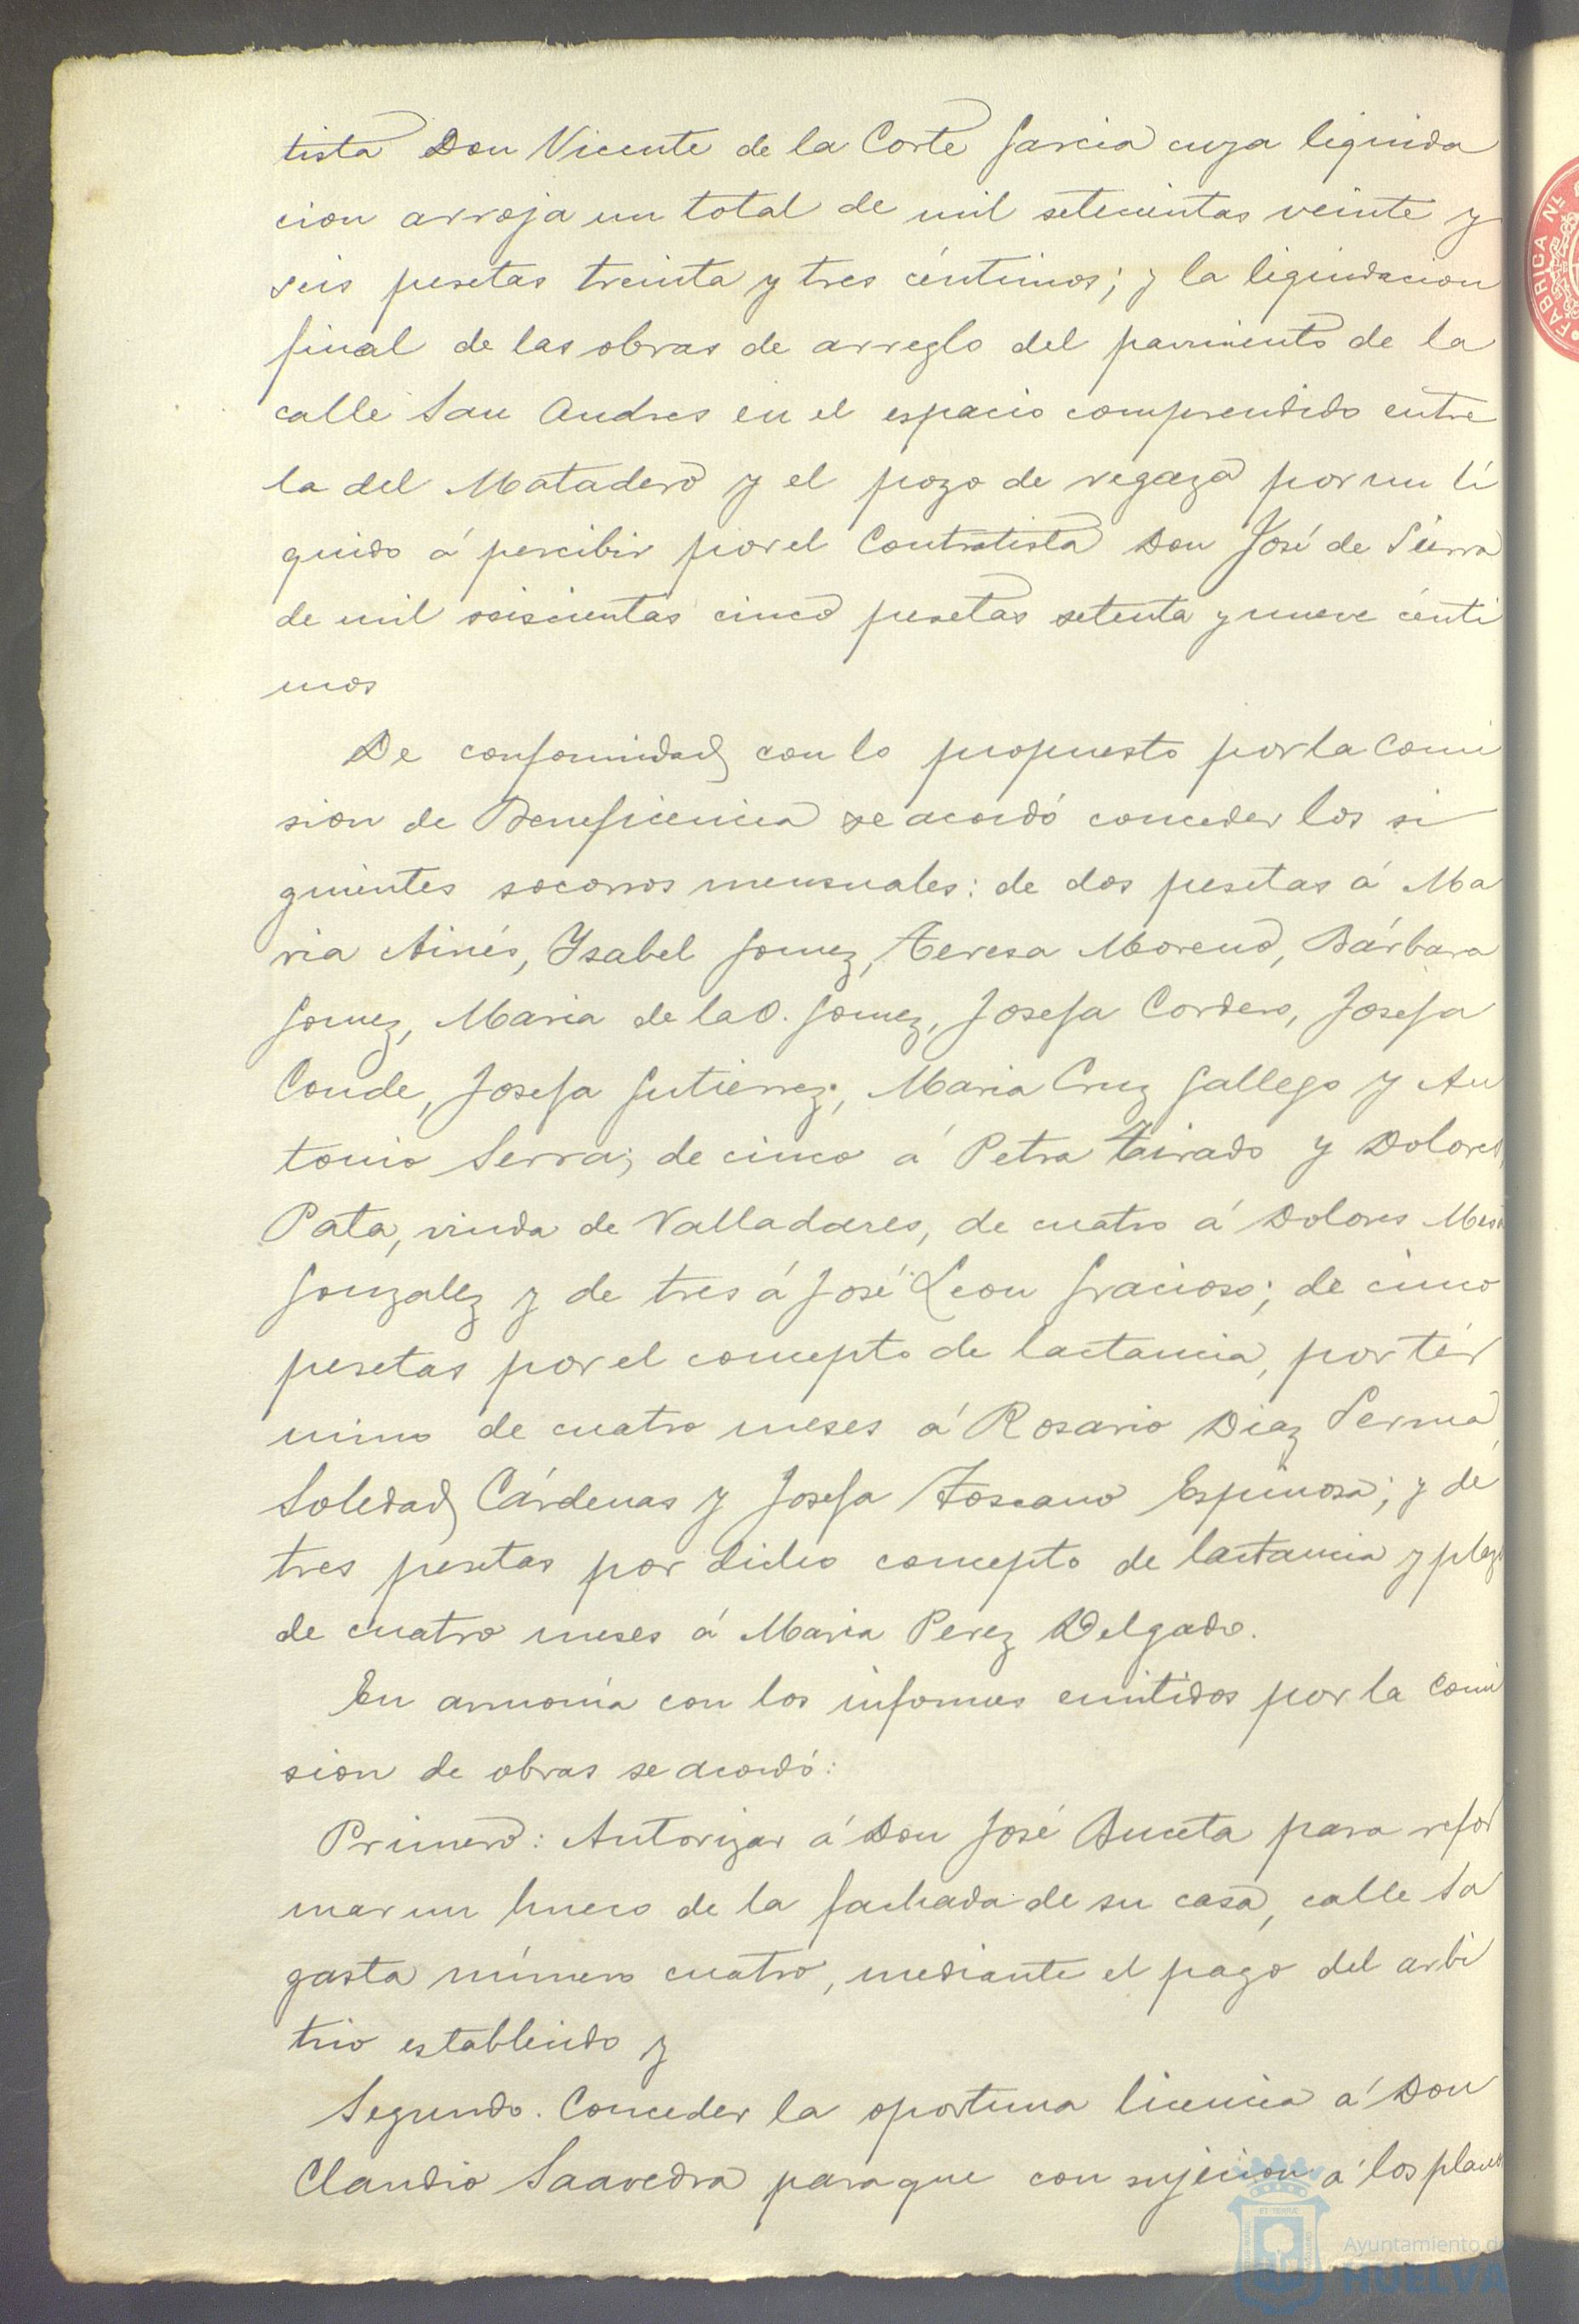 tista Don Vicente de la Corte Garcia cuya liquida
cion arroja un total de mil setecientas veinte y
seis pesetas treinta y tres céntimos; y la liquidacion
final de las obras de arreglo del pavimento de la
calle San Andres en el espacio comprendido entre
la del Matadero y el pozo de regaza por un lí
quido á percibir por el Contratista Don José de Sierra
de mil seiscientas cinco pesetas setenta y nueve cénti
mos
De conformidad con lo propuesto por la Comi
sion de Beneficencia se acordó conceder los si
guientes socorros mensuales: de dos pesetas á Ma
ria Ainés, Ysabel Gomez, Teresa Moreno, Bárbara
Gomez, Maria de la O. Gomez, Josefa Cordero, Josefa
Conde, Josefa Gutierrez, Maria Cruz Gallego y An
tonio Serra; de cinco á Petra Tirado y Dolores
Pata, viuda de Valladares, de cuatro á Dolores
Gonzalez y de tres á José Leon Gracioso; de cinco
pesetas por el concepto de lactancia, por tér
mino de cuatro meses á Rosario Diaz Serna
Soledad Cárdenas y Josefa Toscano Espinosa; y de
tres pesetas por dicho concepto de lactancia y plazo
de cuatro meses á Maria Perez Delgado.
En armonía con los informes emitidos por la Comi
sion de obras se acordó:
Primero: Autorizar á Don José Buceta para refor
mar un hueco de la fachada de su casa, calle Sa
gasta número cuatro, mediante el pago del arbi
trio establecido y
Segundo. Conceder la oportuna licencia á Don
Claudio Saavedra para que con sujecion á los planos
FABRICA N
Ayuntamiento de
HUELVA